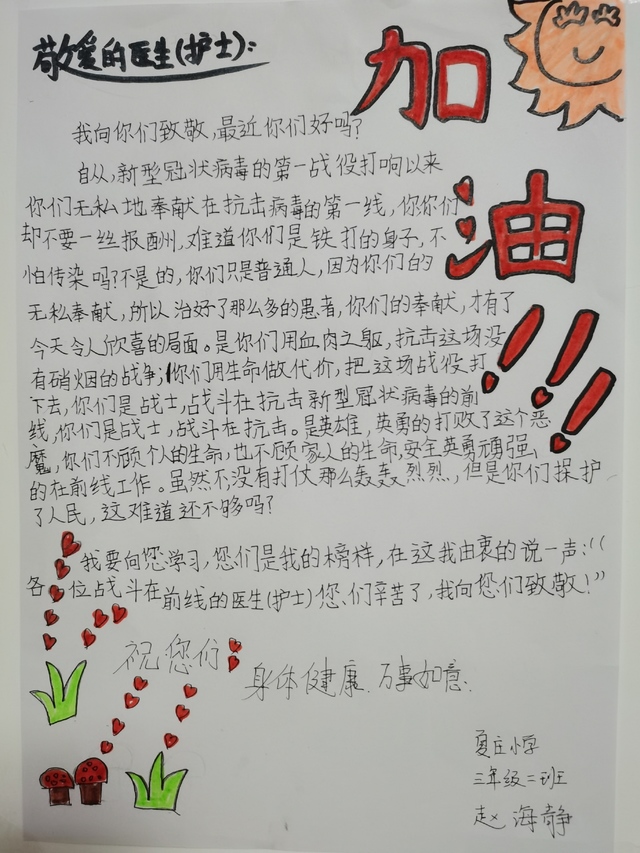 敬爱的医生(护士):
加
油
!!!
我向你们致敬,最近你们好吗?
自从,新型冠状病毒的第一战役打响以来
你们无私地奉献在抗击病毒的第一线,你你们
却不要一丝报酬,难道你们是铁打的身子,不
怕传染吗?不是的,你们只是普通人,因为你们的
无私奉献,所以治好了那么多的患者,你们的奉献,才有了
今天令人欣喜的局面。是你们用血肉之躯,抗击这场没
有硝烟的战争;你们用生命做代价,把这场战役打
下去,你们是战士,战斗在抗击新型冠状病毒的前
线,你们是战士,战斗在抗击。是英雄,英勇的打败了这个恶
魔,你们不顾个人的生命,也不顾家人的生命,安全英勇顽强
的在前线工作。虽然不没有打仗那么轰轰烈烈,但是你们保护
了人民,这难道还不够吗?
我要向您学习,您们是我的榜样,在这我由衷的说一声:“
各位战斗在前线的医生(护士)您们辛苦了,我向您们致敬!”
祝您们
身体健康.万事如意.
夏庄小学
三年级二班
赵海静